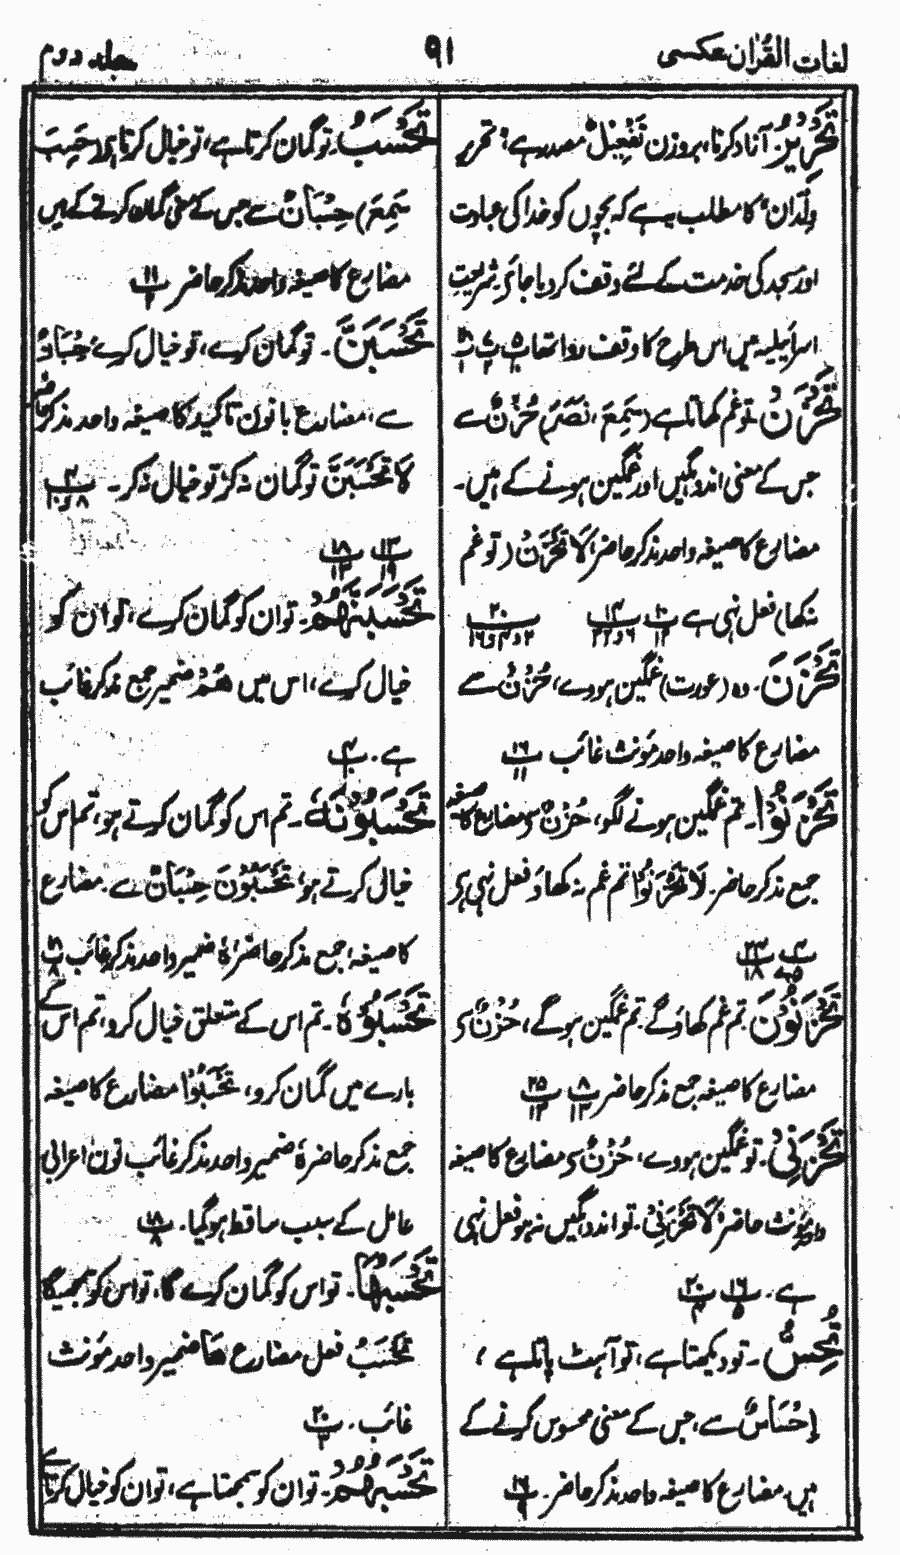 لغات القرآن عکسی ۹۱ جلد دوم
تَحْرِیْر۔ آزاد کرنا، بروزن تَفْعِیْل مصدر ہے، تحریر
ولدان کا مطلب یہ ہے کہ بچوں کو خدا کی عبادت
اور مسجد کی خدمت کے لئے وقف کر دیا جائے، شریعتِ
اسرائیلیہ میں اس طرح کا وقف روا تھا
تَحْزَنُ۔ تو غم کھاتا ہے (سَمِعَ، نَصَرَ) حُزْنٌ سے
جس کے معنی اندوہگیں اور غمگین ہونے کے ہیں۔
مضارع کا صیغہ واحد مذکر حاضر، لَا تَحْزَنْ (تو غم
نہ کھا) فعل نہی ہے
تَحْزَنَ۔ وہ (عورت) غمگین ہووے، حُزْنٌ سے
مضارع کا صیغہ واحد مؤنث غائب ۱۶/۱۱
تَحْزَنُوْا۔ تم غمگین ہونے لگو، حُزْنٌ سے مضارع کا صیغہ
جمع مذکر حاضر۔ لَا تَحْزَنُوْا تم غم نہ کھاؤ فعل نہی ہے
تَحْزَنُوْنَ۔ تم غم کھاؤ گے، تم غمگین ہو گے، حُزْنٌ سے
مضارع کا صیغہ جمع مذکر حاضر ۸/۱۲ ۲۵/۱۳
تَحْزَنِیْ۔ تو غمگین ہووے، حُزْنٌ سے مضارع کا صیغہ
واحد مؤنث حاضر، لَا تَحْزَنِیْ۔ تو اندوہگیں نہ ہو فعل نہی
ہے۔ ۱۶/۵ ۲۰/۴
تُحِسُّ۔ تو دیکھتا ہے، تو آہٹ پاتا ہے،
اِحْسَاسٌ سے، جس کے معنی محسوس کرنے کے
ہیں۔ مضارع کا صیغہ واحد مذکر حاضر۔
تَحْسَبُ۔ تو گمان کرتا ہے، تو خیال کرتا ہے (حَسِبَ
سَمِعَ) حِسْبَانٌ سے جس کے معنی گمان کرنے کے ہیں
مضارع کا صیغہ واحد مذکر حاضر
تَحْسَبَنَّ۔ تو گمان کرے، تو خیال کرے، حِسْبَانٌ
سے، مضارع بانون تاکید کا صیغہ واحد مذکر حاضر
لَا تَحْسَبَنَّ تو گمان نہ کر، تو خیال نہ کر۔
۱۳/۱۹ ۱۸/۱۳
تَحْسَبَنَّهُمْ۔ تو ان کو گمان کرے، تو ان کو
خیال کرے، اس میں هُمْ ضمیر جمع مذکر غائب
ہے۔ ۴
تَحْسَبُوْنَهٗ۔ تم اس کو گمان کرتے ہو، تم اس کو
خیال کرتے ہو، تَحْسَبُوْنَ حِسْبَانٌ سے۔ مضارع
کا صیغہ، جمع مذکر حاضر، هٗ ضمیر واحد مذکر غائب
تَحْسَبُوْهُ۔ تم اس کے متعلق خیال کرو، تم اس کے
بارے میں گمان کرو، تَحْسَبُوْا مضارع کا صیغہ
جمع مذکر حاضر، هٗ ضمیر واحد مذکر غائب نون اعرابی
عامل کے سبب ساقط ہو گیا۔ ۱۸/۸
تَحْسَبُهَا۔ تو اس کو گمان کرے گا، تو اس کو سمجھیگا
تَحْسَبُ فعل مضارع هَا ضمیر واحد مؤنث
غائب۔ ۲۰/۳
تَحْسَبُهُمْ۔ تو ان کو سمجھتا ہے، تو ان کو خیال کرتا ہے